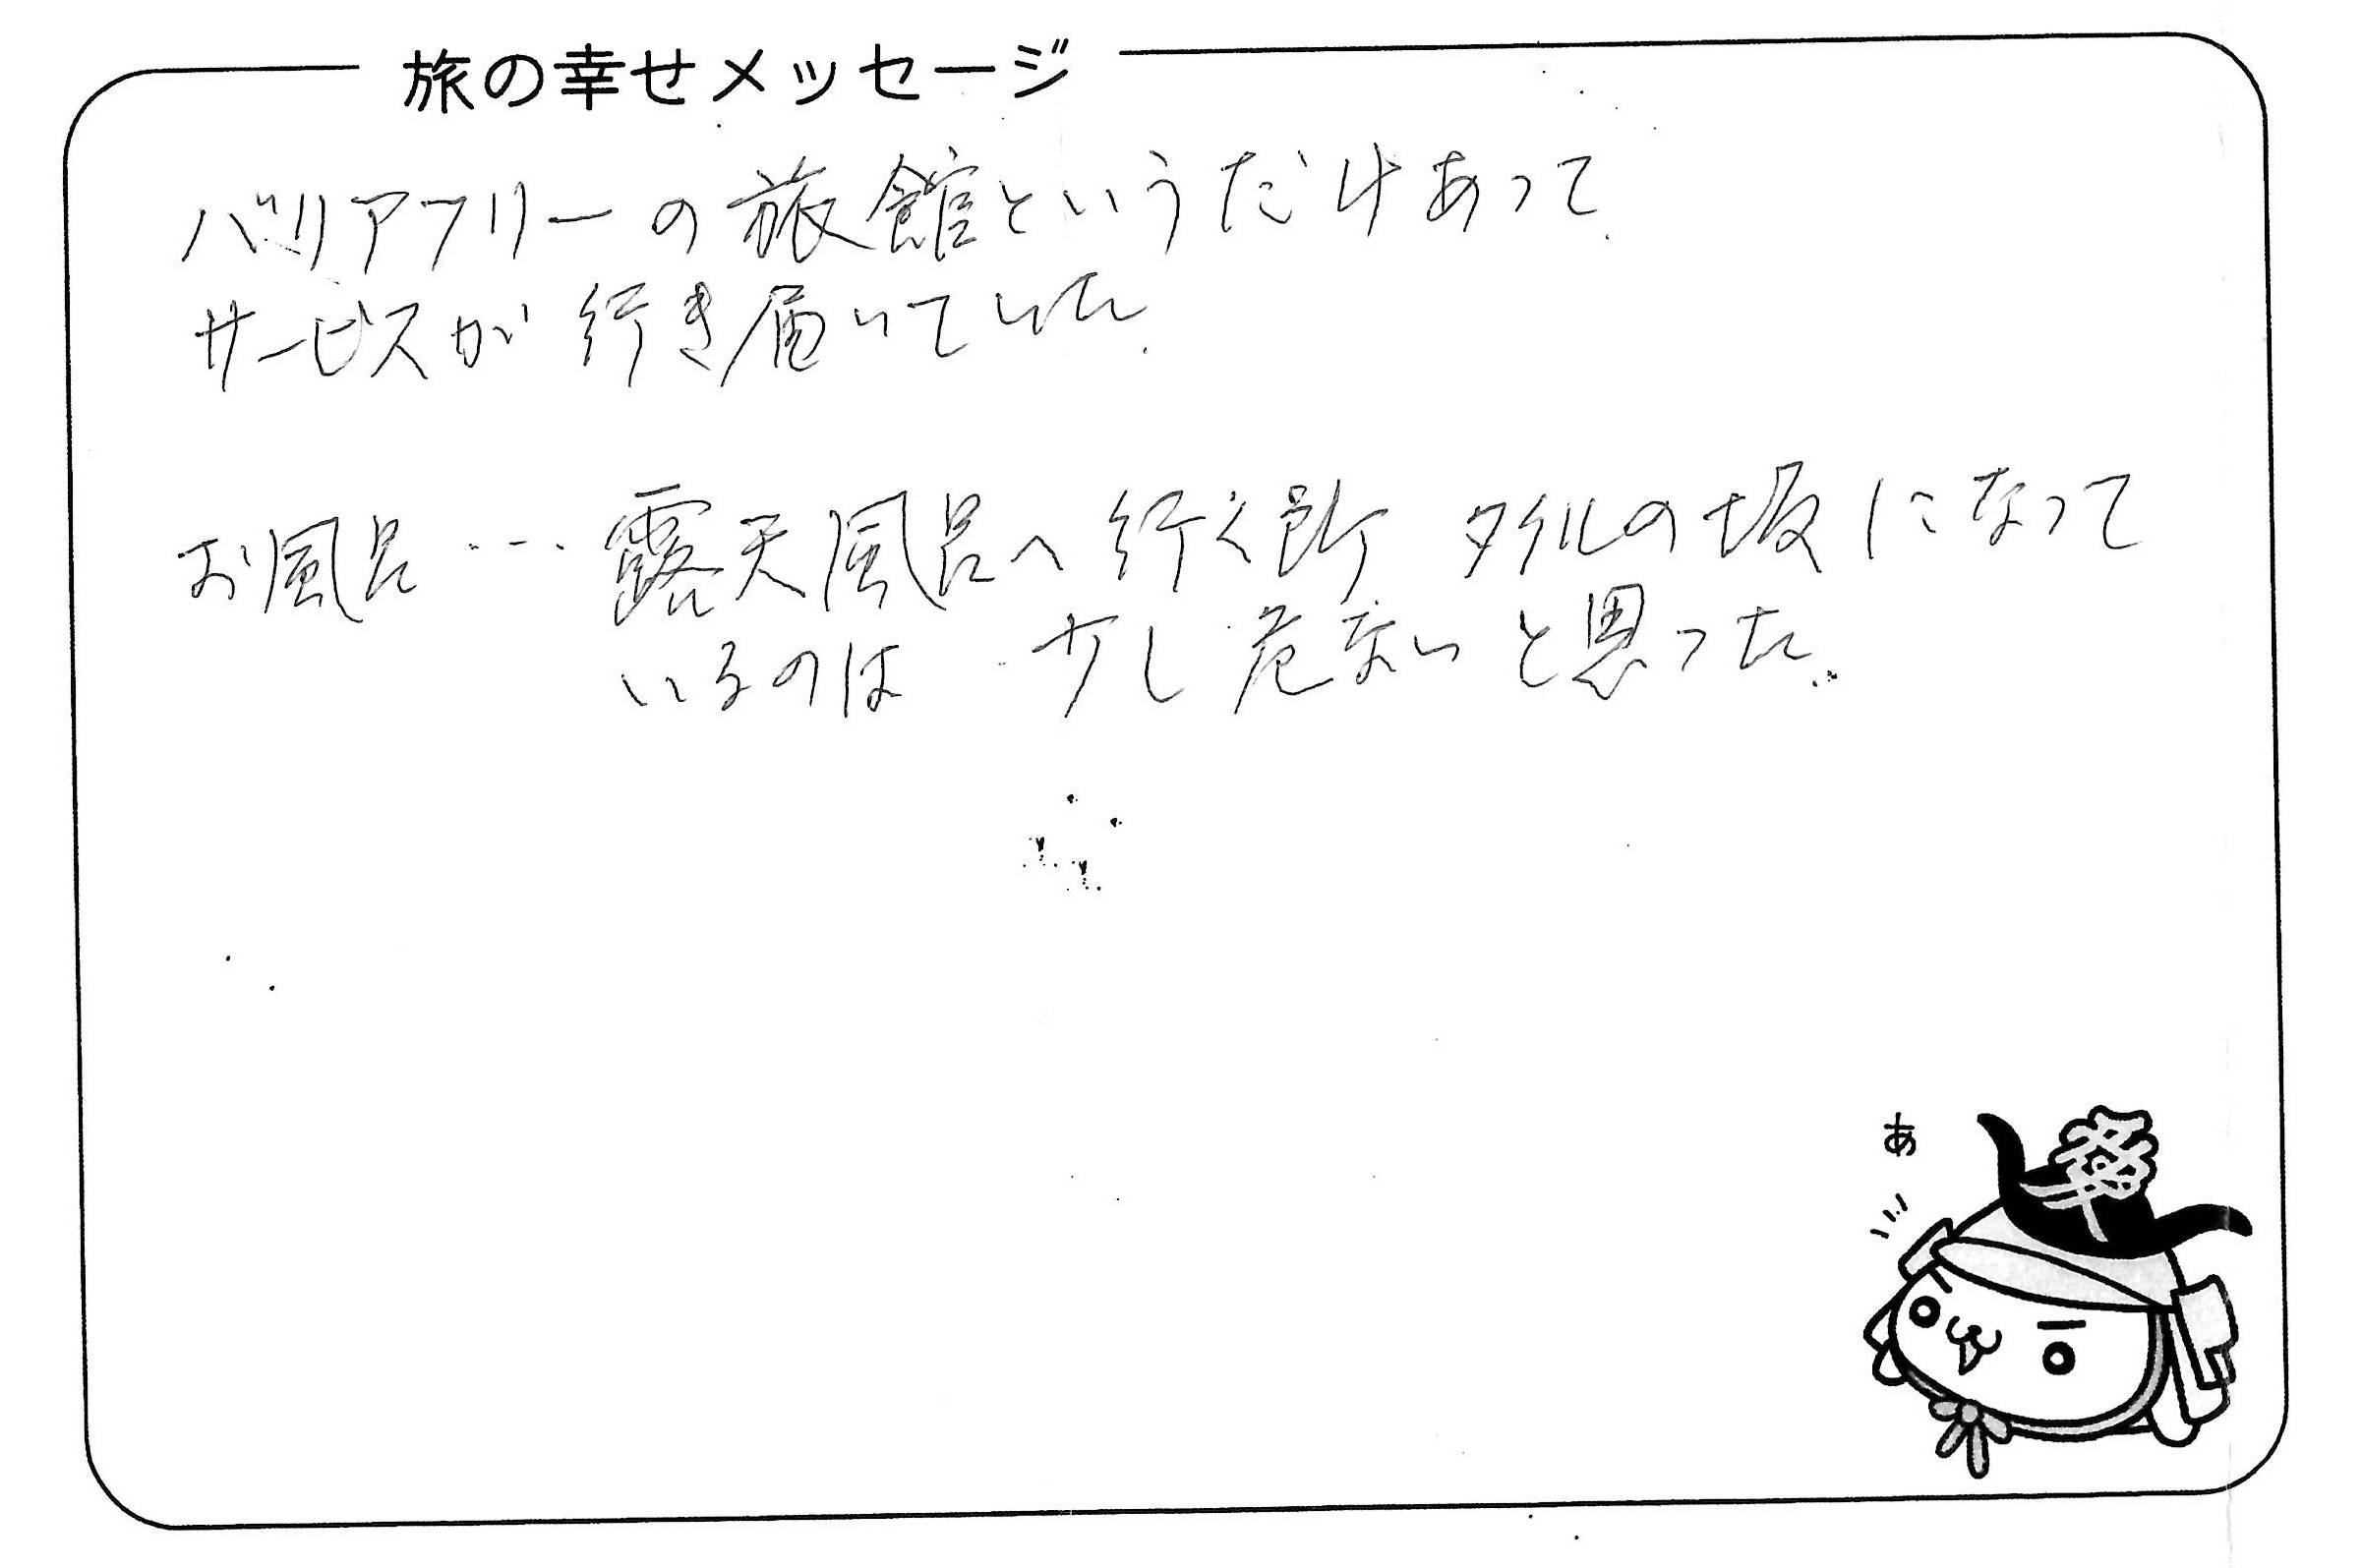 旅の幸せメッセージ
バリアフリーの旅館というだけあって
サービスが行き届いていた.
お風呂… 露天風呂へ行く所 タイルの坂になって
いるのは 少し危ないと思った.
あ
愛